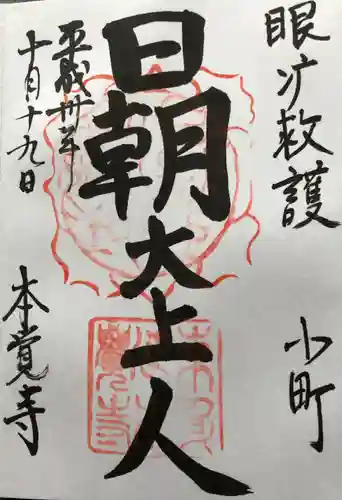 眼疒救護
小町
日朝大上人
平成卅年
十月十九日
本覺寺